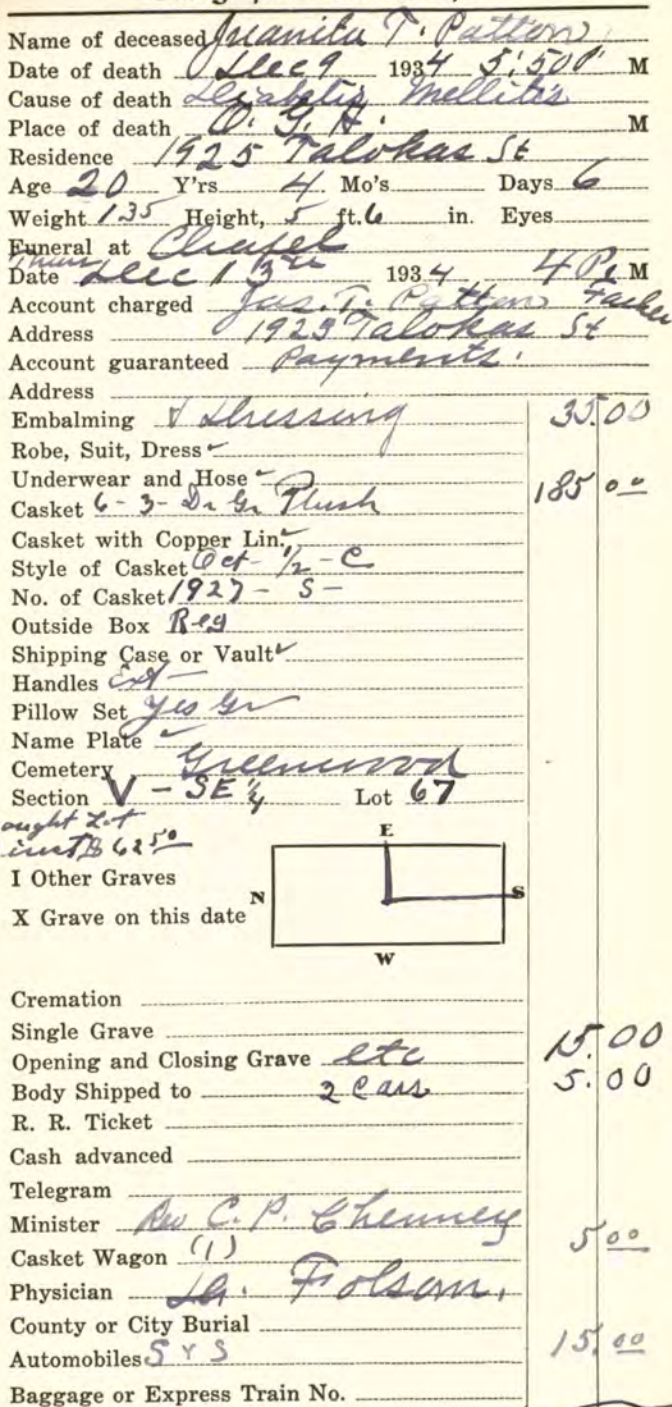 Name of deceased Juanita T. Patton
Date of death Dec 9 1934 5:50 P. M
Cause of death Diabetis Mellitis
Place of death O. G. H. M
Residence 1925 Talokas St
Age 20 Y'rs 4 Mo's Days 6
Weight 135 Height, 5 ft. 6 in. Eyes
Funeral at Chapel
Thurs
Date Dec 13th 1934 4 P. M
Account charged Jas. T. Patton Father
Address 1925 Talokas St
Account guaranteed Payments.
Address
Embalming & Dressing 35.00
Robe, Suit, Dress ✓
Underwear and Hose ✓
Casket 6-3- Dr Gr Plush 185 00
Casket with Copper Lin. ✓
Style of Casket Oct- 1/2 - C
No. of Casket 1927 - S -
Outside Box Reg
Shipping Case or Vault ✓
Handles Ext -
Pillow Set Yes Gr
Name Plate ✓
Cemetery Greenwood
Section V - SE 1/4 Lot 67
ought Lot
62 50
E
I Other Graves
N S
X Grave on this date
W
Cremation
Single Grave
Opening and Closing Grave etc 15.00
Body Shipped to 2 Cars 5.00
R. R. Ticket
Cash advanced
Telegram
Minister Rev C. P. Chenney
Casket Wagon (1) 5 00
Physician Dr. Folsom.
County or City Burial
Automobiles S Y S 15.00
Baggage or Express Train No.